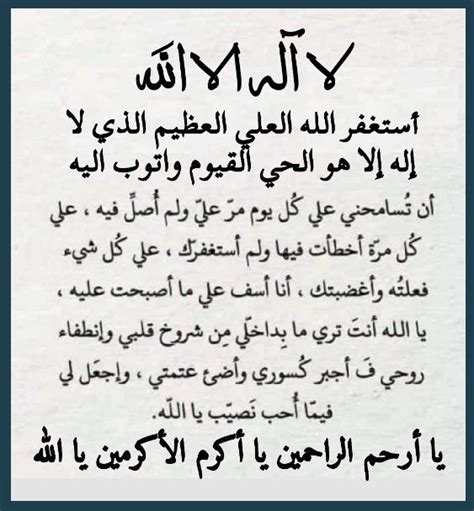 لا آله الا الله
أستغفر الله العلي العظيم الذي لا
إله إلا هو الحي القيوم واتوب اليه
أن تُسامحني علي كُل يوم مرّ عليّ ولم أُصلِّ فيه ، علي
كُل مرّة أخطأت فيها ولم أستغفرّك ، علي كُل شيء
فعلتُه وأغضبتك ، أنا أسف علي ما أصبحت عليه ،
يا الله أنتَ تري ما بِداخلّي مِن شروخ قلبي وإنطفاء
روحي فَ أجبر كُسوري وأضئ عتمتي ، وإجعَل لي
فيمّا أُحب نَصيّب يا اللّه.
يا أرحم الراحمين يا أكرم الأكرمين يا الله